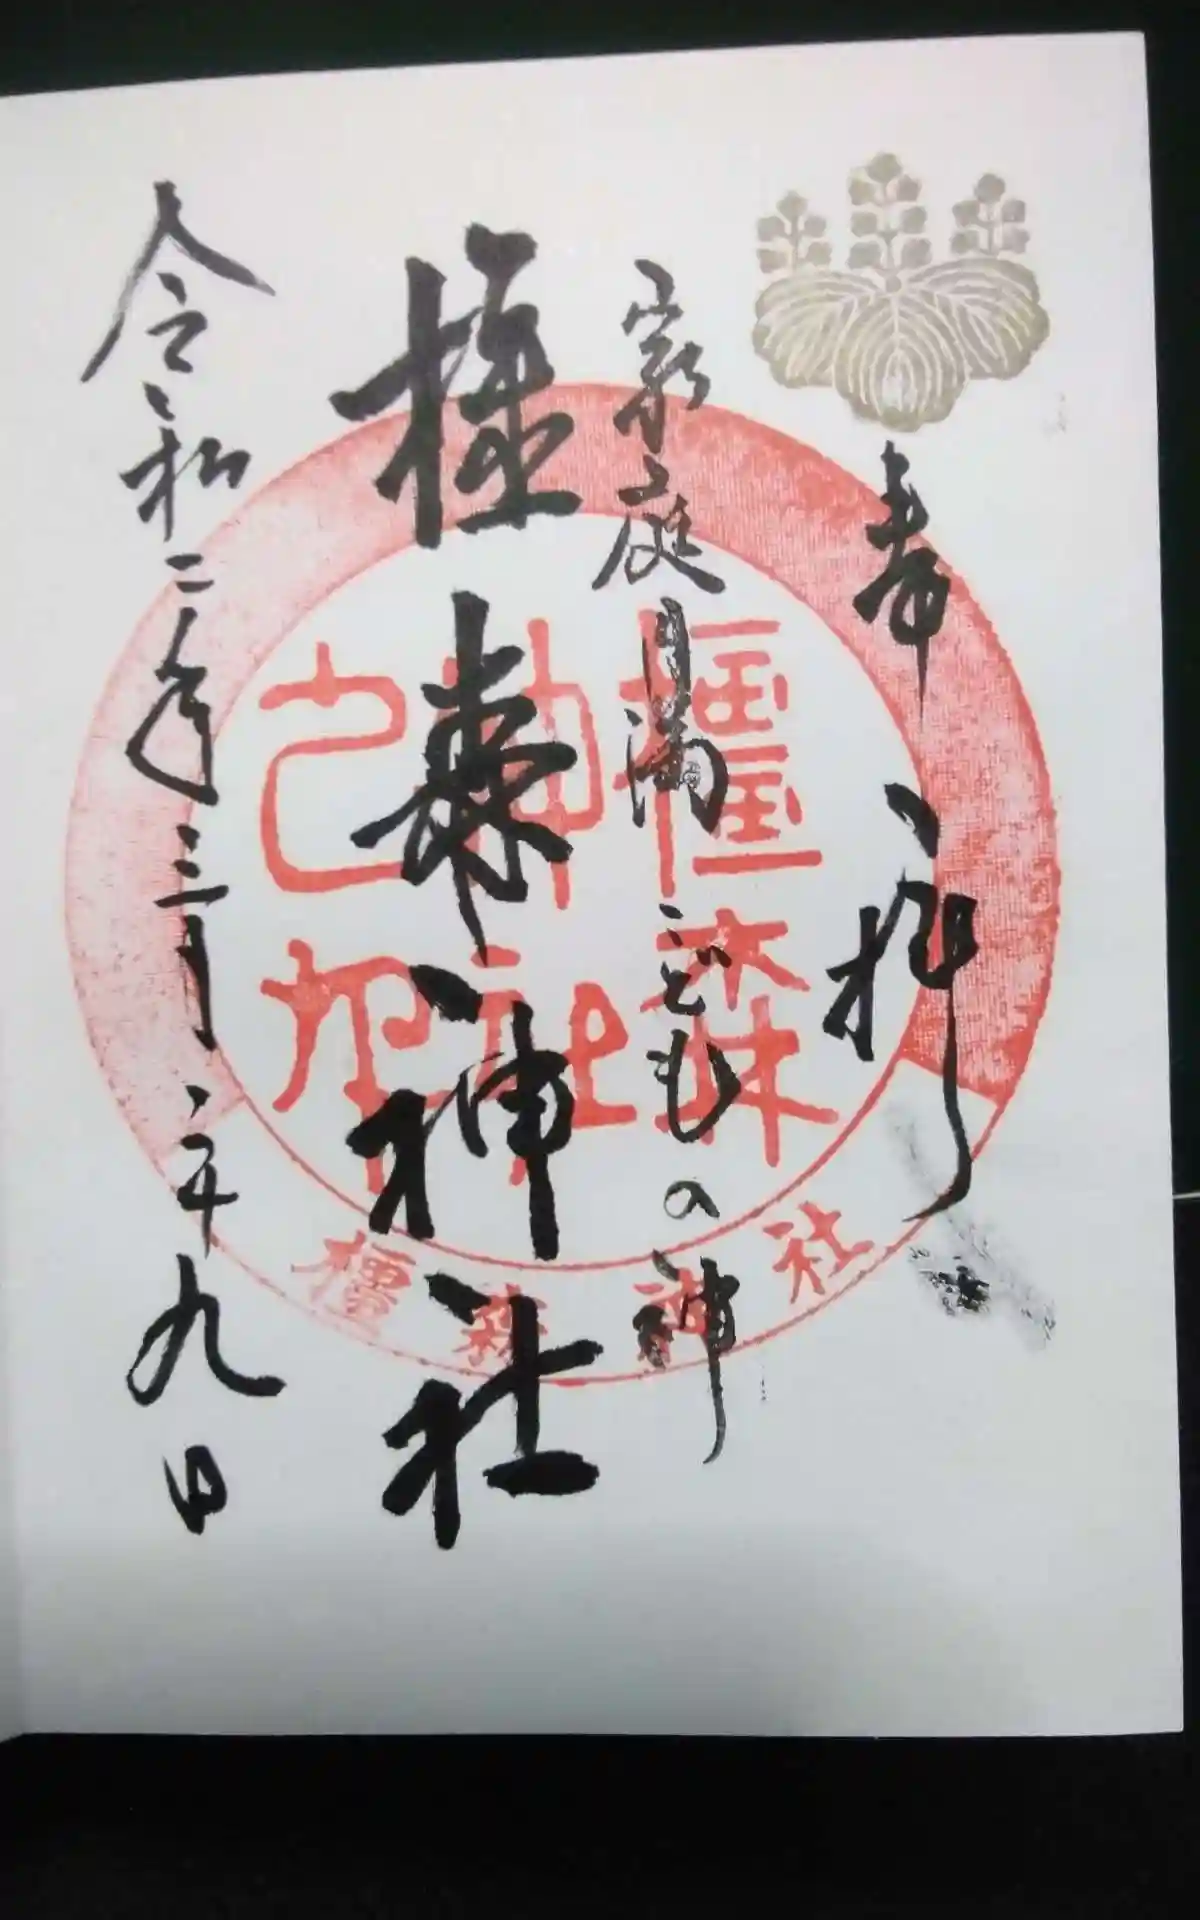 奉拝
家庭円満こどもの神
橿森神社
令和二年三月二十九日
橿森
神社
印
橿森神社